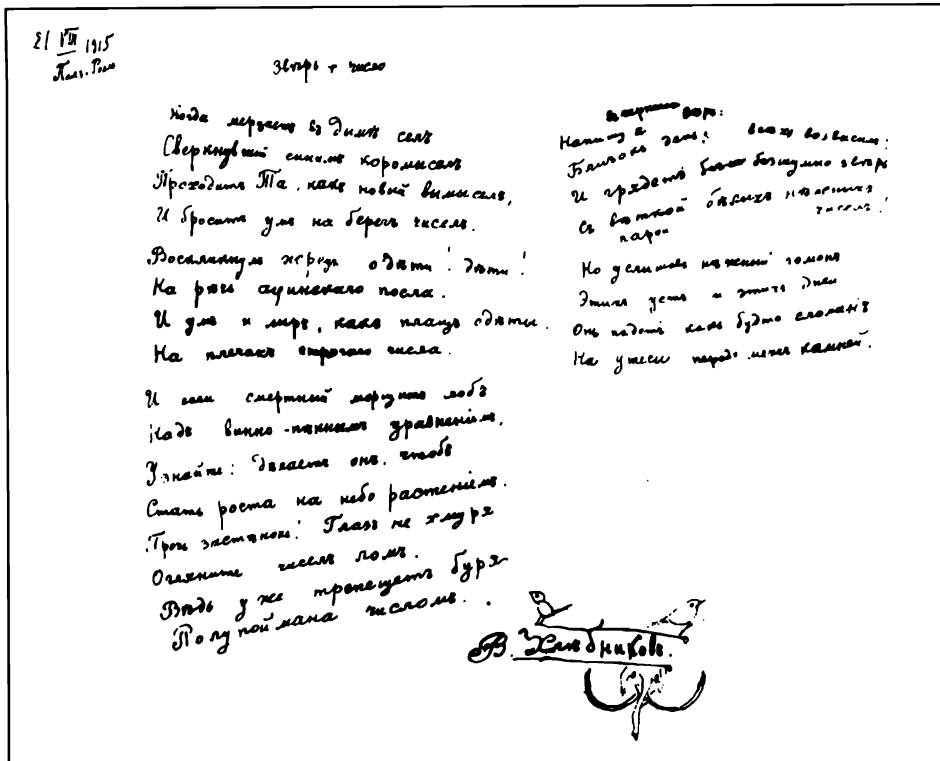 21 VIII 1915
Звѣрь + число
Когда мерцаетъ въ дымѣ селъ
Сверкнувшій синимъ коромыселъ
Проходитъ Та, какъ новый вымыселъ,
И бросить умъ на берегъ чиселъ.
Воскликнулъ жрецъ о дѣти! дѣти!
На рѣчь аѳинскаго посла.
И умъ и міръ, какъ плащъ одѣти
На плечахъ строгаго числа.
И если смертный морщитъ лобъ
Надъ винно-пѣннымъ уравненіемъ,
Узнайте: дѣлаетъ онъ, чтобъ
Стать роста на небо растеніемъ.
Прочь застѣнокъ! Глазъ не хмуря
Огляните чиселъ ломъ.
Вѣдь уже трепещетъ буря
Полупоймана числомъ.
Напишу я
Близокъ день: всѣхъ возвысимъ:
И грядетъ безумно звѣрь
Съ парой бѣлыхъ нѣжныхъ чиселъ!
Но услышавъ нѣжный гомонъ
Этихъ устъ и этихъ дней
Онъ падетъ какъ будто сломанъ
На утесы передъ камней.
В. Хлѣбниковъ.